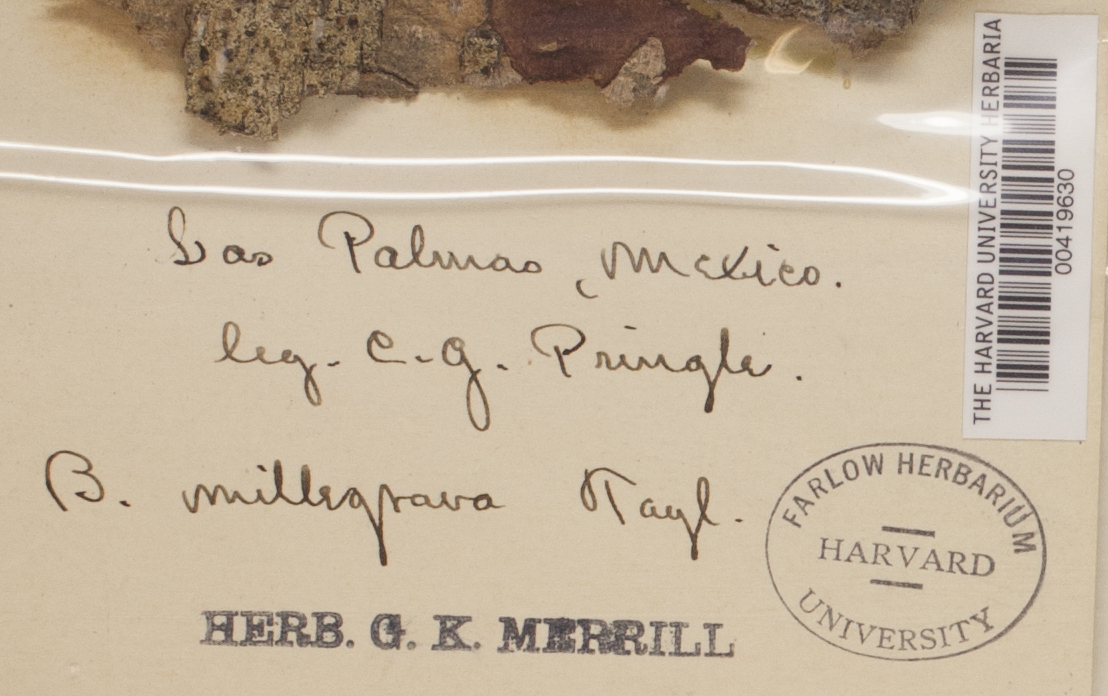 Las Palmas, Mexico.
leg. C. G. Pringle.
B. millegrana Tayl.
HERB. G. K. MERRILL
FARLOW HERBARIUM
HARVARD
UNIVERSITY
THE HARVARD UNIVERSITY HERBARIA
00419630